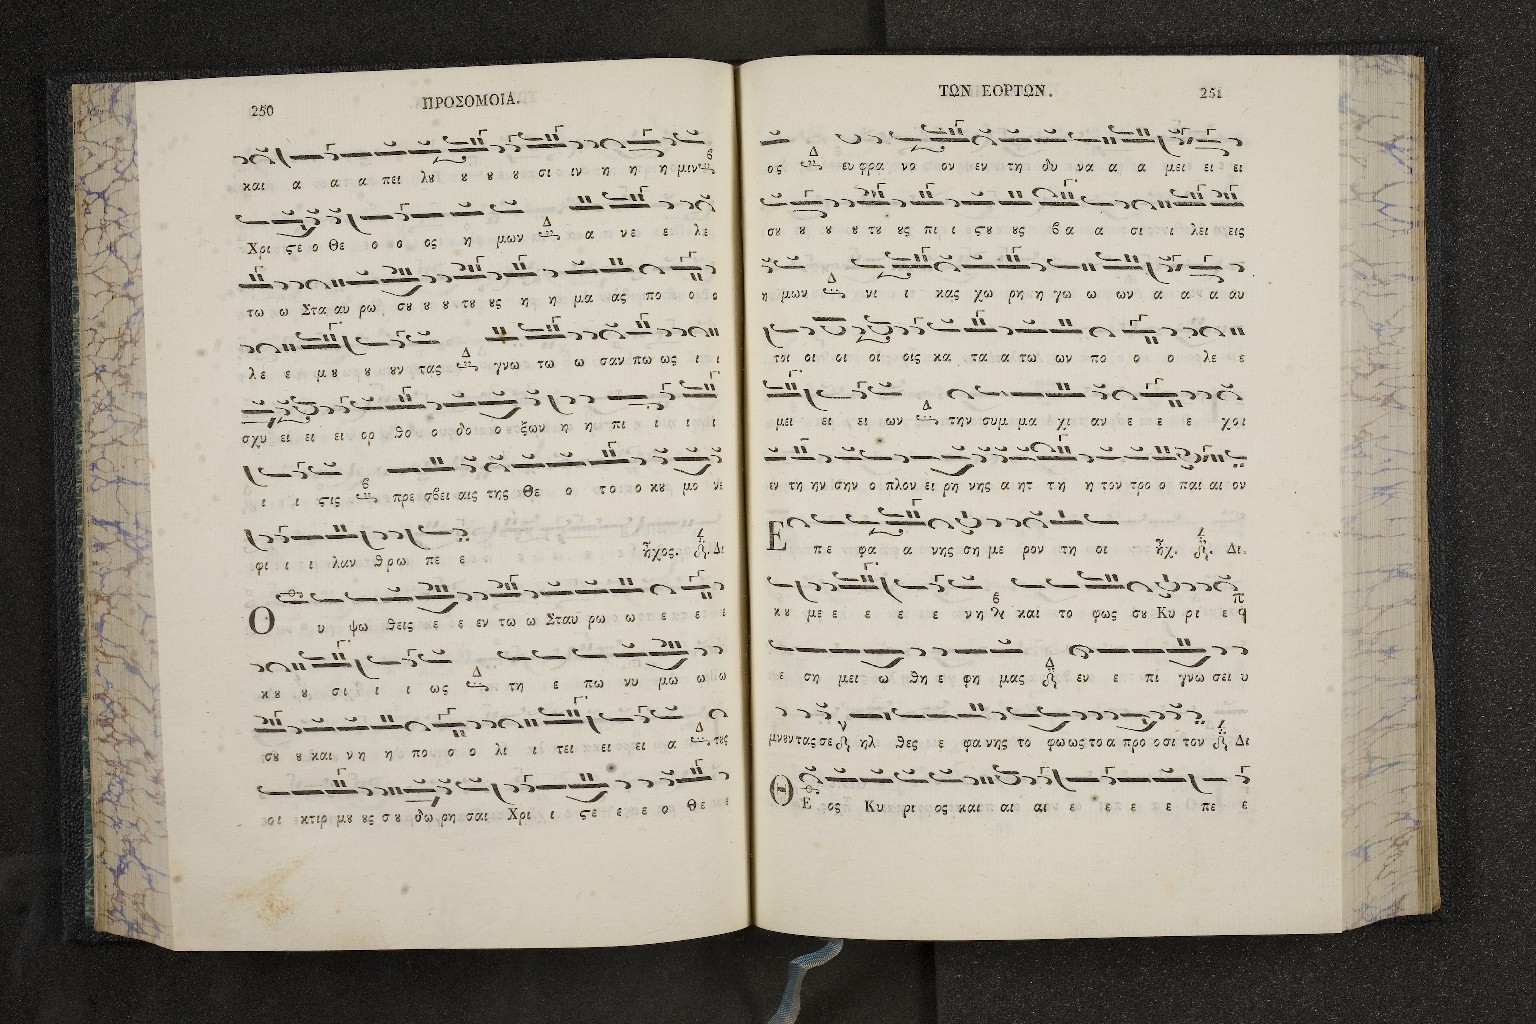 250 ΠΡΟΣΟΜΟΙΑ.
και α α α πει λȣ ȣ ȣ ȣ σι ιν η η η μιν
Χρι ϛε ο Θε ο ο ος η μων Δ α νε ε λε
τω ω Στα αυ ρω σȣ ȣ ȣ τȣ ȣς η η μα ας πο ο ο
λε ε μȣ ȣ ȣν τας Δ γνω τω ω σαν πω ως ι ι
σχυ ει ει ει ορ θο ο δο ο ξων η η πι ι ι ι
ι ι ϛις β πρε σβει αις της Θε ο το ο κȣ μο νε
φι ι ι λαν θρω πε ε ἦχος. Δι
Ο υ ψω θεις ε ε εν τω ω Σταυ ρω ω ε ε ε
κȣ ȣ σι ι ι ως Δ τη ε πω νυ μω ω ω
σȣ ȣ και νη η πο ο ο λι ι τει ει ει α Δ τȣς
οι κτιρ μȣ ȣς σȣ δω ρη σαι Χρι ι ϛε ε ε ο Θε ε
ΤΩΝ ΕΟΡΤΩΝ. 251
ος Δ ευ φρα νο ον εν τη δυ να α α μει ει ει
σȣ ȣ ȣ ȣ τȣ ȣς πι ι ϛȣ ȣς βα α σι ι λει εις
η μων Δ νι ι κας χω ρη η γω ω ων α α α αυ
τοι οι οι οι οις κα τα α τω ων πο ο ο λε ε
μει ει ει ων Δ την συμ μα χι αν ε ε ε χοι
εν τη ην σην ο πλον ει ρη νης α ητ τη η τον τρο ο παι αι ον
Ε πε φα α νης ση με ρον τη οι ἦχ. Δι.
κȣ με ε ε ε ε νη και το φως σȣ Κυ ρι ε
ε ση μει ω θη ε φη μας Δ εν ε πι γνω σει υ
μνȣν τας σε ηλ θες ε φα νης το φω ως το α προ ο σι τον Δι
Θ Ε ος Κυ ρι ος και αι αι ε ε ε ε πε ε